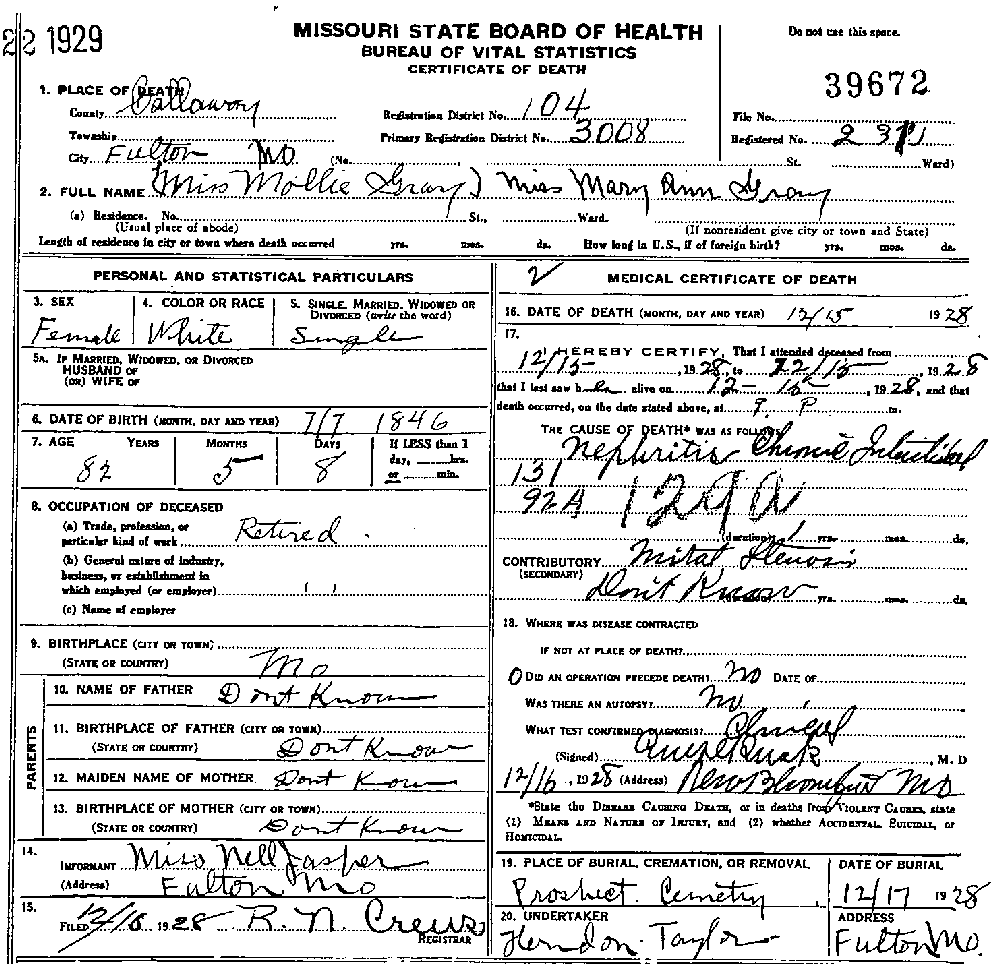 22 1929
MISSOURI STATE BOARD OF HEALTH
BUREAU OF VITAL STATISTICS
CERTIFICATE OF DEATH
Do not use this space.
39672
1. PLACE OF DEATH
County Callaway
Registration District No. 104
File No.
Township
Primary Registration District No. 3008
Registered No.
City Fulton Mo (No. St. Ward)
2. FULL NAME (Miss Mollie Gray) Miss Mary Ann Gray
(a) Residence. No. St., Ward.
(Usual place of abode) (If nonresident give city or town and State)
Length of residence in city or town where death occurred yrs. mos. ds. How long in U.S., if of foreign birth? yrs. mos. ds.
PERSONAL AND STATISTICAL PARTICULARS
3. SEX 4. COLOR OR RACE 5. SINGLE, MARRIED, WIDOWED OR DIVORCED (write the word)
Female White Single
5A. IF MARRIED, WIDOWED, OR DIVORCED
HUSBAND OF
(OR) WIFE OF
6. DATE OF BIRTH (MONTH, DAY AND YEAR) 7/7 1846
7. AGE YEARS MONTHS DAYS If LESS than 1 day, hrs. or min.
82 5 8
8. OCCUPATION OF DECEASED
(a) Trade, profession, or
particular kind of work Retired.
(b) General nature of industry,
business, or establishment in
which employed (or employer) " "
(c) Name of employer
9. BIRTHPLACE (CITY OR TOWN)
(STATE OR COUNTRY) Mo
PARENTS
10. NAME OF FATHER Dont Know
11. BIRTHPLACE OF FATHER (CITY OR TOWN)
(STATE OR COUNTRY) Dont Know
12. MAIDEN NAME OF MOTHER Dont Know
13. BIRTHPLACE OF MOTHER (CITY OR TOWN)
(STATE OR COUNTRY) Dont Know
14. INFORMANT Miss Nell Jasper
(Address) Fulton Mo
15. FILED 12/16 1928 R. N. Crews
REGISTRAR
2 MEDICAL CERTIFICATE OF DEATH
16. DATE OF DEATH (MONTH, DAY AND YEAR) 12/15 1928
17.
I HEREBY CERTIFY, That I attended deceased from
12/15, 1928, to 12/15, 1928
that I last saw her alive on 12-15, 1928, and that
death occurred, on the date stated above, at 7. P. m.
THE CAUSE OF DEATH* WAS AS FOLLOWS:
Nephritis Chronic Intestitial
131
92A 129a
(duration) yrs. mos. ds.
CONTRIBUTORY Mitral Stenosis
(SECONDARY)
Don't Know yrs. mos. ds.
18. WHERE WAS DISEASE CONTRACTED
IF NOT AT PLACE OF DEATH?
0 DID AN OPERATION PRECEDE DEATH? No DATE OF
WAS THERE AN AUTOPSY? No
WHAT TEST CONFIRMED DIAGNOSIS? Clinical
(Signed) , M. D
12/16, 1928 (Address) New Bloomfield Mo
*State the DISEASE CAUSING DEATH, or in deaths from VIOLENT CAUSES, state
(1) MEANS AND NATURE OF INJURY, and (2) whether ACCIDENTAL, SUICIDAL, or
HOMICIDAL.
19. PLACE OF BURIAL, CREMATION, OR REMOVAL DATE OF BURIAL
Prospect Cemetry 12/17 1928
20. UNDERTAKER ADDRESS
Herndon Taylor Fulton Mo.